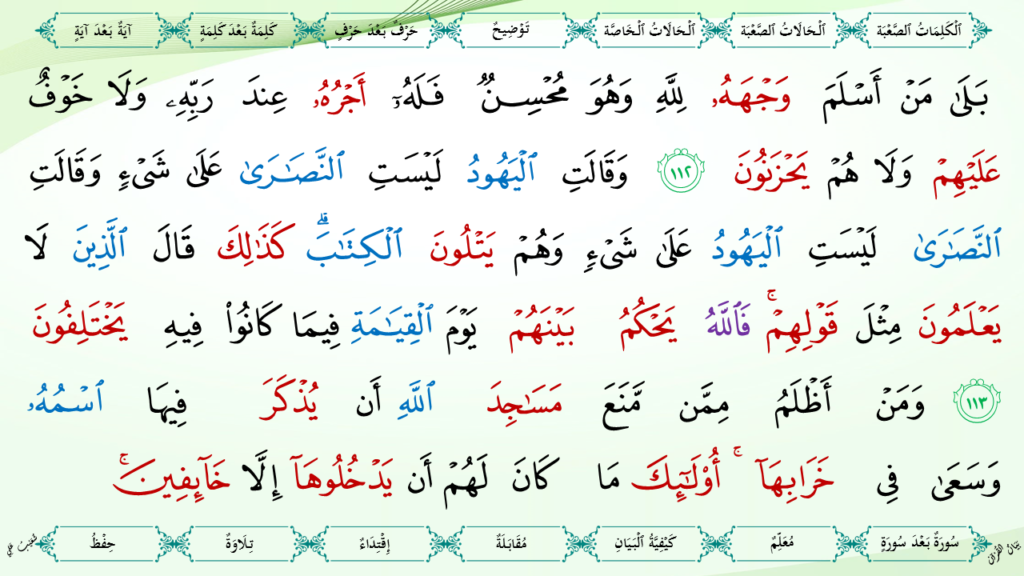 اَلْكَلِمَاتُ الصَّعْبَة اَلْحَالَاتُ الصَّعْبَة اَلْحَالَاتُ الْخَاصَّة تَوْضِيحٌ حَرْفٌ بَعْدَ حَرْفٍ كَلِمَةٌ بَعْدَ كَلِمَةٍ آيَةٌ بَعْدَ آيَةٍ
بَلَىٰ مَنْ أَسْلَمَ وَجْهَهُۥ لِلَّهِ وَهُوَ مُحْسِنٌ فَلَهُۥٓ أَجْرُهُۥ عِندَ رَبِّهِۦ وَلَا خَوْفٌ
عَلَيْهِمْ وَلَا هُمْ يَحْزَنُونَ ١١٢ وَقَالَتِ ٱلْيَهُودُ لَيْسَتِ ٱلنَّصَـٰرَىٰ عَلَىٰ شَىْءٍ وَقَالَتِ
ٱلنَّصَـٰرَىٰ لَيْسَتِ ٱلْيَهُودُ عَلَىٰ شَىْءٍ وَهُمْ يَتْلُونَ ٱلْكِتَـٰبَ ۗ كَذَٰلِكَ قَالَ ٱلَّذِينَ لَا
يَعْلَمُونَ مِثْلَ قَوْلِهِمْ ۚ فَٱللَّهُ يَحْكُمُ بَيْنَهُمْ يَوْمَ ٱلْقِيَـٰمَةِ فِيمَا كَانُوا۟ فِيهِ يَخْتَلِفُونَ
١١٣ وَمَنْ أَظْلَمُ مِمَّن مَّنَعَ مَسَـٰجِدَ ٱللَّهِ أَن يُذْكَرَ فِيهَا ٱسْمُهُۥ
وَسَعَىٰ فِى خَرَابِهَآ ۚ أُو۟لَـٰٓئِكَ مَا كَانَ لَهُمْ أَن يَدْخُلُوهَآ إِلَّا خَآئِفِينَ ۚ
سُورَةٌ بَعْدَ سُورَةٍ مُعَلِّمٌ كَيْفِيَّةُ الْبَيَانِ مُقَابَلَةٌ إِقْتِدَاءٌ تِلَاوَةٌ حِفْظٌ
بَيَانُ الْقُرْآنِ